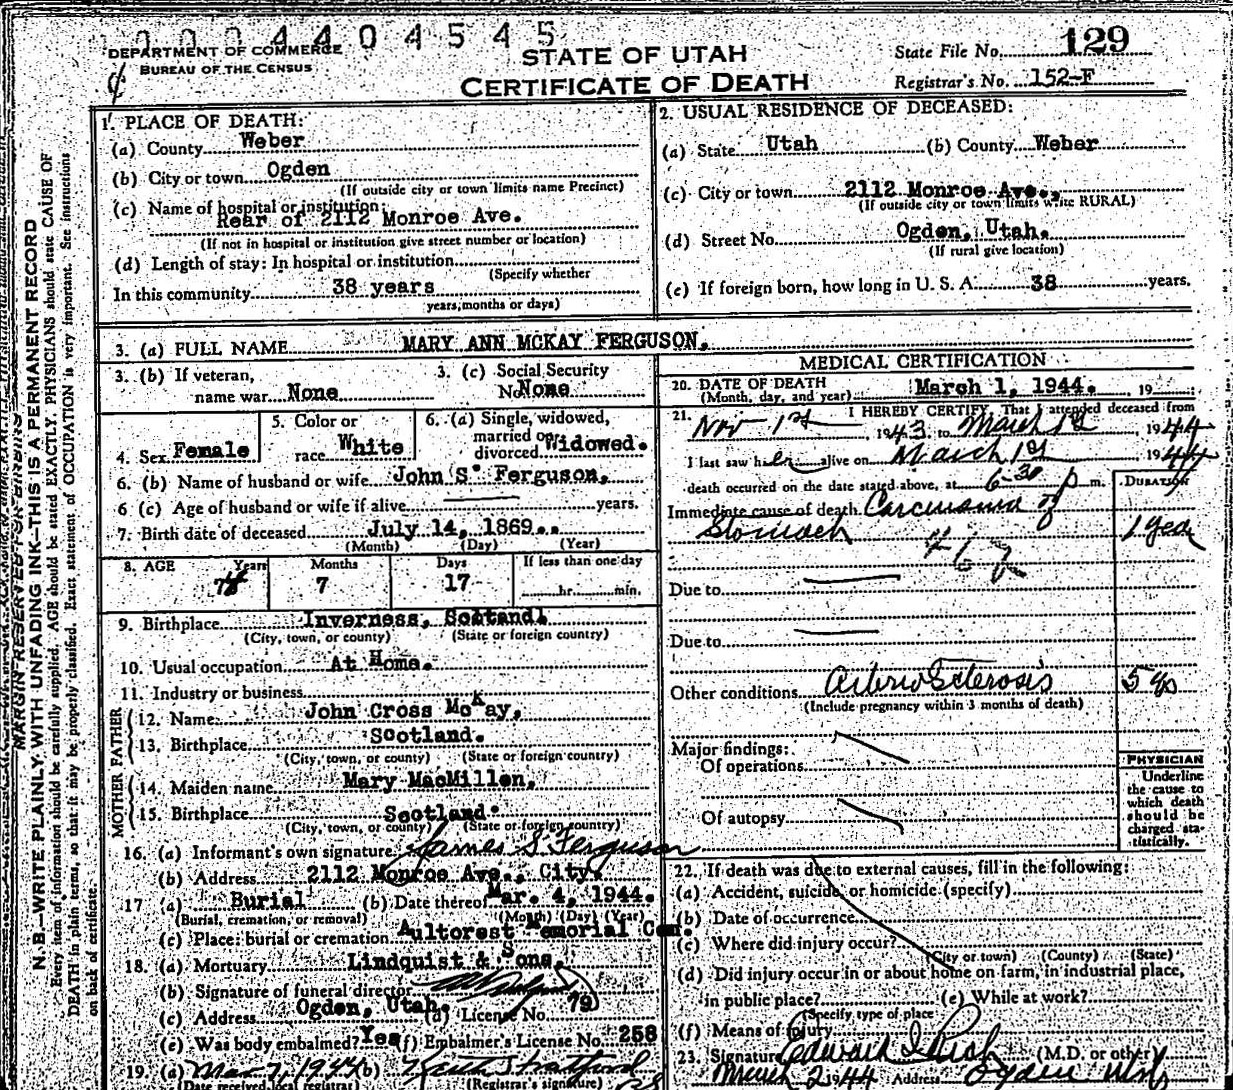 0004404545
DEPARTMENT OF COMMERCE
BUREAU OF THE CENSUS
STATE OF UTAH
CERTIFICATE OF DEATH
State File No. 129
Registrar's No. 152-F
MARGIN RESERVED FOR BINDING
N. B.—WRITE PLAINLY, WITH UNFADING INK—THIS IS A PERMANENT RECORD
Every item of information should be carefully supplied. AGE should be stated EXACTLY. PHYSICIANS should state CAUSE OF
DEATH in plain terms, so that it may be properly classified. Exact statement of OCCUPATION is very important. See instructions
on back of certificate.
1. PLACE OF DEATH:
(a) County Weber
(b) City or town Ogden
(If outside city or town limits name Precinct)
(c) Name of hospital or institution:
Rear of 2112 Monroe Ave.
(If not in hospital or institution give street number or location)
(d) Length of stay: In hospital or institution
(Specify whether
In this community 38 years
years, months or days)
2. USUAL RESIDENCE OF DECEASED:
(a) State Utah (b) County Weber
(c) City or town 2112 Monroe Ave.,
(If outside city or town limits write RURAL)
(d) Street No. Ogden, Utah.
(If rural give location)
(e) If foreign born, how long in U. S. A. 38 years.
3. (a) FULL NAME MARY ANN MCKAY FERGUSON,
3. (b) If veteran,
name war None
3. (c) Social Security
No. None
4. Sex Female
5. Color or
race White
6. (a) Single, widowed,
married or
divorced Widowed.
6. (b) Name of husband or wife John S. Ferguson,
6 (c) Age of husband or wife if alive years.
7. Birth date of deceased July 14, 1869..
(Month) (Day) (Year)
8. AGE Years Months Days If less than one day
7 17 hr. min.
9. Birthplace Inverness, Scotland.
(City, town, or county) (State or foreign country)
10. Usual occupation At Home.
11. Industry or business
FATHER
12. Name John Cross McKay,
13. Birthplace Scotland.
(City, town, or county) (State or foreign country)
MOTHER
14. Maiden name Mary MacMillen,
15. Birthplace Scotland.
(City, town, or county) (State or foreign country)
16. (a) Informant's own signature James S Ferguson
(b) Address 2112 Monroe Ave., City.
17 (a) Burial (b) Date thereof Mar. 4, 1944.
(Burial, cremation, or removal) (Month) (Day) (Year)
(c) Place: burial or cremation Aultorest Memorial Cem.
18. (a) Mortuary Lindquist & Sons.
(b) Signature of funeral director
(c) Address Ogden, Utah. (d) License No. 79
(e) Was body embalmed? Yes (f) Embalmer's License No. 258
19. (a) Mar 7, 1944 (b) Keith Stratford
(Date received local registrar) (Registrar's signature)
MEDICAL CERTIFICATION
20. DATE OF DEATH March 1, 1944. , 19
(Month, day, and year)
21. I HEREBY CERTIFY, That I attended deceased from
Nov 1st, 1943, to March 1st, 1944
I last saw her alive on March 1st, 1944
death occurred on the date stated above, at 6-30 p m.
DURATION
Immediate cause of death Carcinoma of
Stomach 1 year
Due to
Due to
Other conditions Arterio Sclerosis 5 yrs
(Include pregnancy within 3 months of death)
Major findings:
Of operations
Of autopsy
PHYSICIAN
Underline
the cause to
which death
should be
charged sta-
tistically.
22. If death was due to external causes, fill in the following:
(a) Accident, suicide, or homicide (specify)
(b) Date of occurrence
(c) Where did injury occur?
(City or town) (County) (State)
(d) Did injury occur in or about home on farm, in industrial place,
in public place? (e) While at work?
(Specify type of place
(f) Means of injury
23. Signature Edward I Rich (M.D. or other)
March 2 1944 Address Ogden Utah